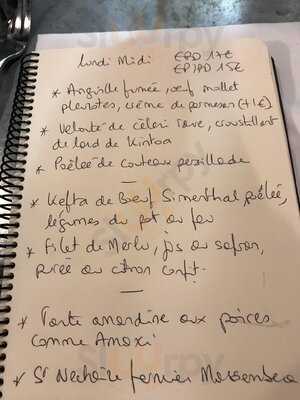 Lundi Midi EPD 17€
EP/PD 15€
* Anguille fumée, oeuf mollet
pleurotes, crème de parmesan (+1€)
* Velouté de céleri rave, croustillant
de lard de Kintoa
* Poêlée de couteau persillade
* Kefta de Boeuf Simenthal poêlée,
légumes du pot au feu
* Filet de Merlu, jus au safran,
purée au citron confit.
* Tarte amandine aux poires
comme Amoxi
* St Nectaire fermier